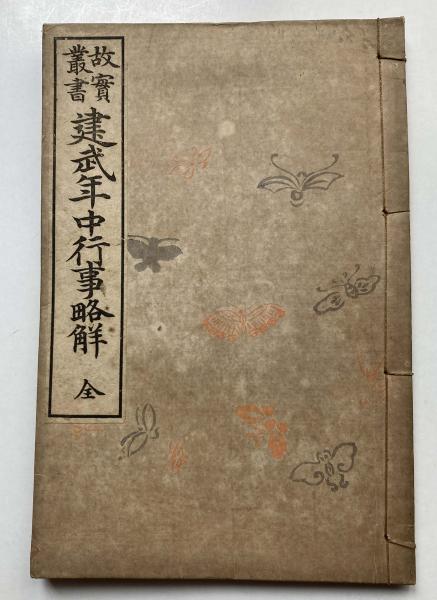 故實叢書
建武年中行事略解 全